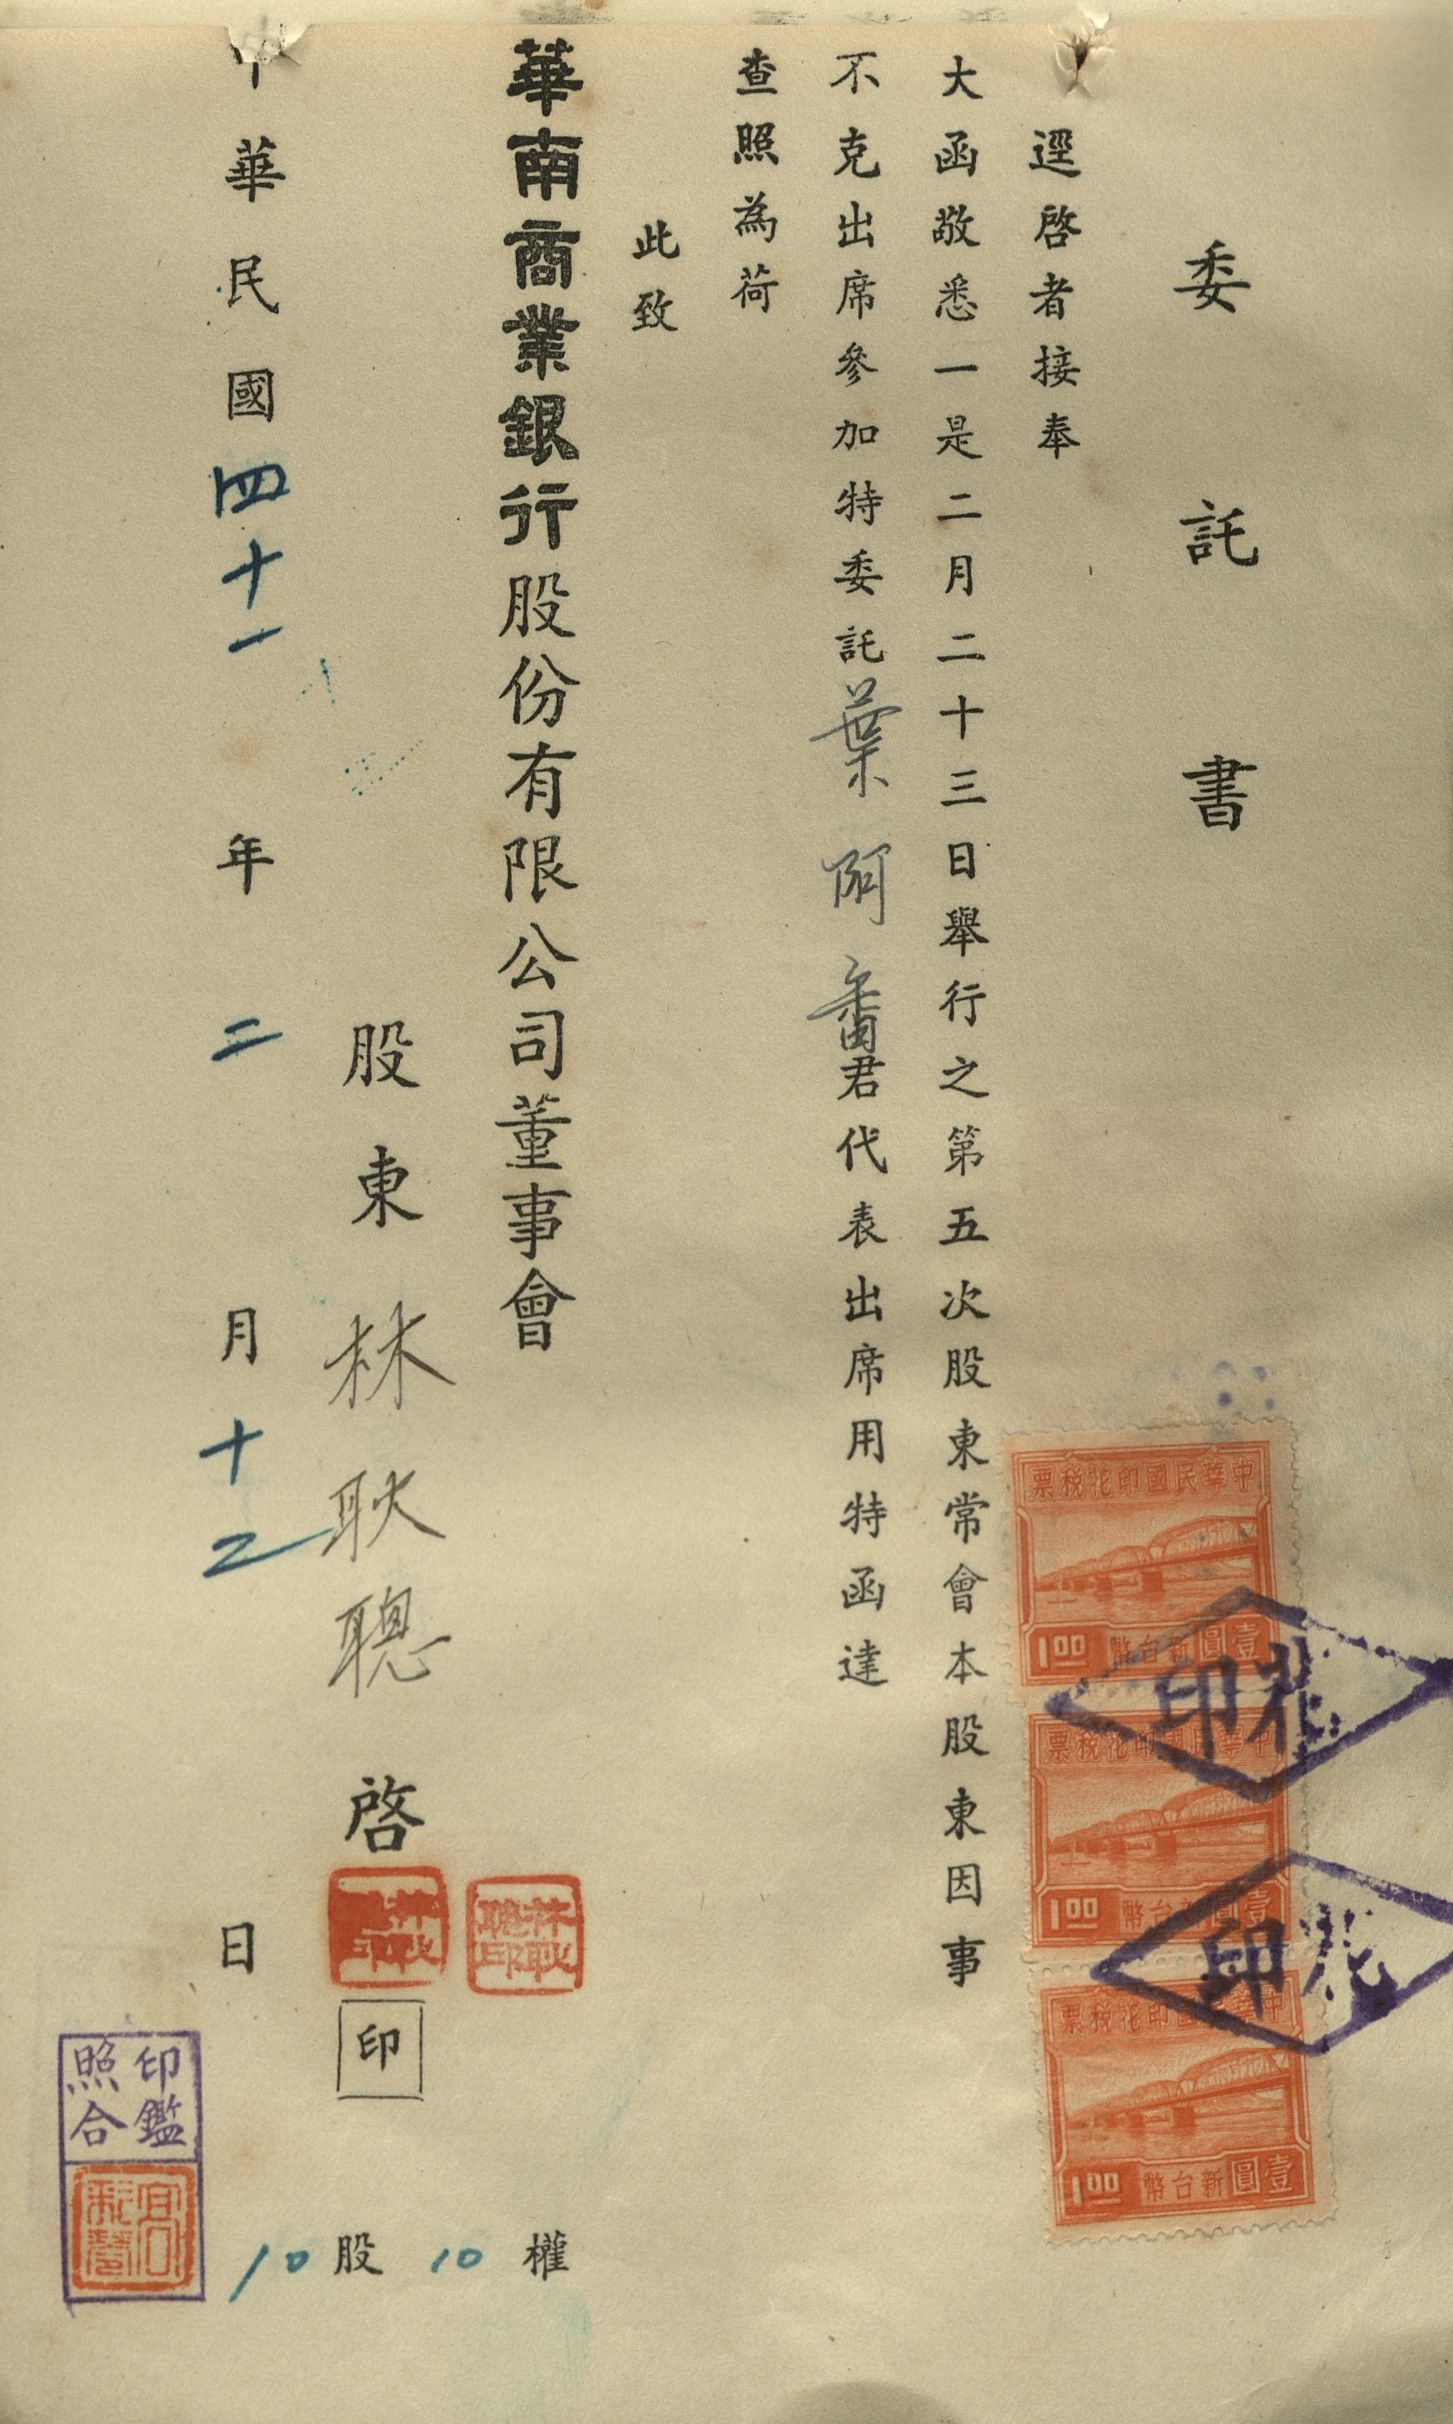 委託書
逕啓者接奉
大函敬悉一是二月二十三日舉行之第五次股東常會本股東因事
不克出席參加特委託葉阿番君代表出席用特函達
查照為荷
此致
華南商業銀行股份有限公司董事會
股東林耿聰啓
印
10股10權
中華民國四十一年二月十二日
印鑑
照合
林耿
聰印
中華民國印花稅票
壹圓新台幣
1.00
中華民國印花稅票
壹圓新台幣
1.00
中華民國印花稅票
壹圓新台幣
1.00
印花
印花